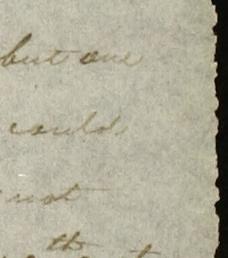 but one
could
not
th